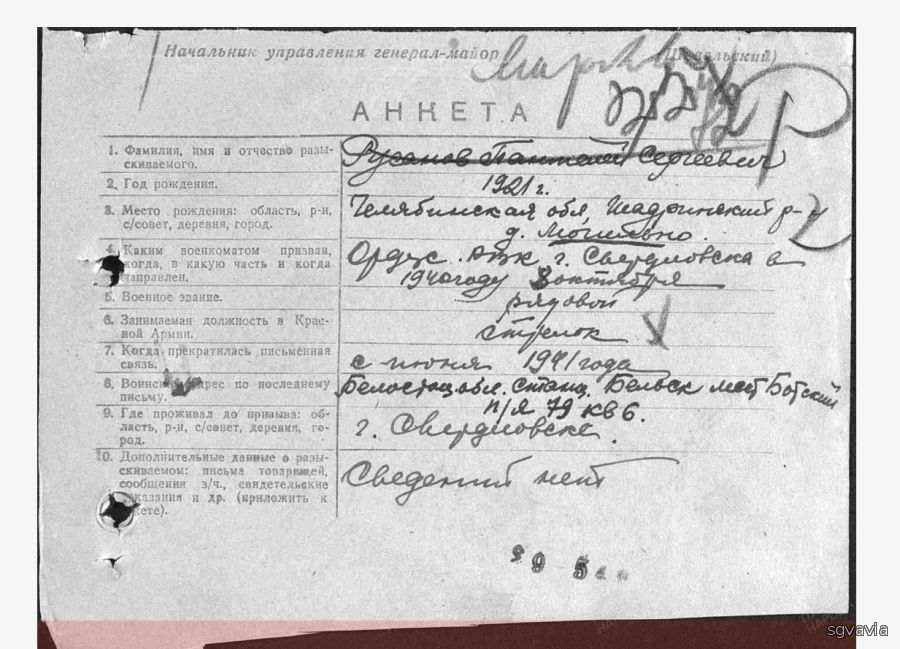 Начальник управления генерал-майор
АНКЕТА
1. Фамилия, имя и отчество разыскиваемого.
Русанов Пантелей Сергеевич
2. Год рождения.
1921 г.
3. Место рождения: область, р-н,
с/совет, деревня, город.
Челябинская обл, Шадринский р-н
д. Могильно.
4. Каким военкоматом призван,
когда, в какую часть и когда
направлен.
Ордж. РВК г. Свердловска в
1940 году октября
5. Военное звание.
рядовой
6. Занимаемая должность в Красной Армии.
стрелок
7. Когда прекратилась письменная
связь.
с июня 1941 года
8. Воинский адрес по последнему
письму.
Белостоц. обл. станц. Бельск мест Ботский
п/я 79 кв 6.
9. Где проживал до призыва: область, р-н, с/совет, деревня, город.
г. Свердловске.
10. Дополнительные данные о разыскиваемом: письма товарищей,
сообщения в/ч., свидетельские
показания и др. (приложить к
анкете).
Сведений нет
sgvavia